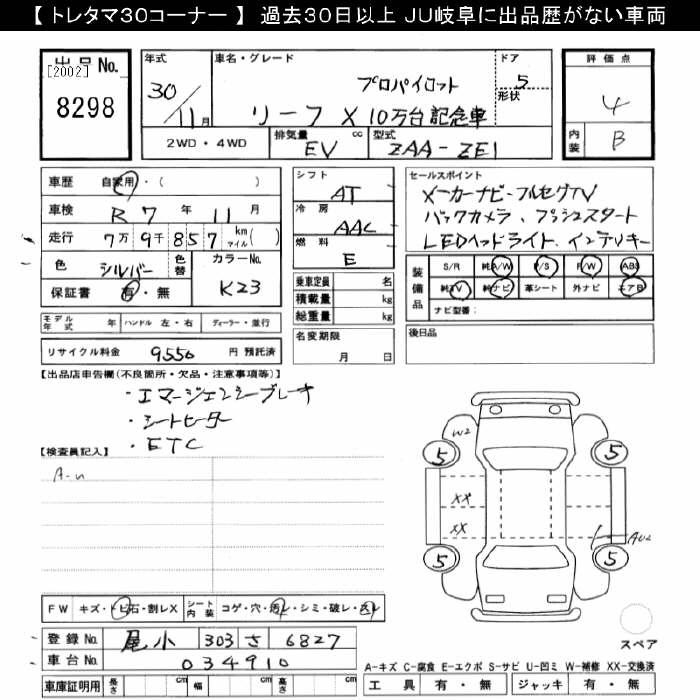 【 トレタマ30コーナー 】 過去30日以上 JU岐阜に出品歴がない車両
出品No.
[2002]
8298
年式
30/11月
車名・グレード
プロパイロット
リーフ X 10万台記念車
ドア
5
形状
評価点
4
内装
B
2WD・4WD
排気量 cc
EV
型式
ZAA-ZE1
車歴 自家用・( )
車検 R 7 年 11 月
走行 7万 9千 857 km マイル( )
色 シルバー 色替 カラーNo.
K23
保証書 有・無
シフト
AT
冷房
AAC
燃料
E
乗車定員 名
積載量 kg
総重量 kg
名変期限
月 日
セールスポイント
メーカーナビ・フルセグTV
バックカメラ、プッシュスタート
LEDヘッドライト、インテリキー
装備品
S/R 純A/W P/S P/W ABS
純TV 純ナビ 革シート 外ナビ エアB
ナビ型番:
後日品
モデル年式 年 ハンドル 左・右 ディーラー・並行
リサイクル料金 9550 円 預託済
【出品店申告欄(不良箇所・欠品・注意事項等)】
・エマージェンシーブレーキ
・シートヒーター
・ETC
【検査員記入】
A-u
W2
5 5
XX
XX
AU2
5 5
スペア
FW キズ・トビ石・割レX シート内装 コゲ・穴・汚レ・シミ・破レ・スレ
登録No. 尾小 303 さ 6827
車台No. 034910
車庫証明用 長さ cm 幅 cm 高さ cm
A-キズ C-腐食 E-エクボ S-サビ U-凹ミ W-補修 XX-交換済
工具 有・無 ジャッキ 有・無